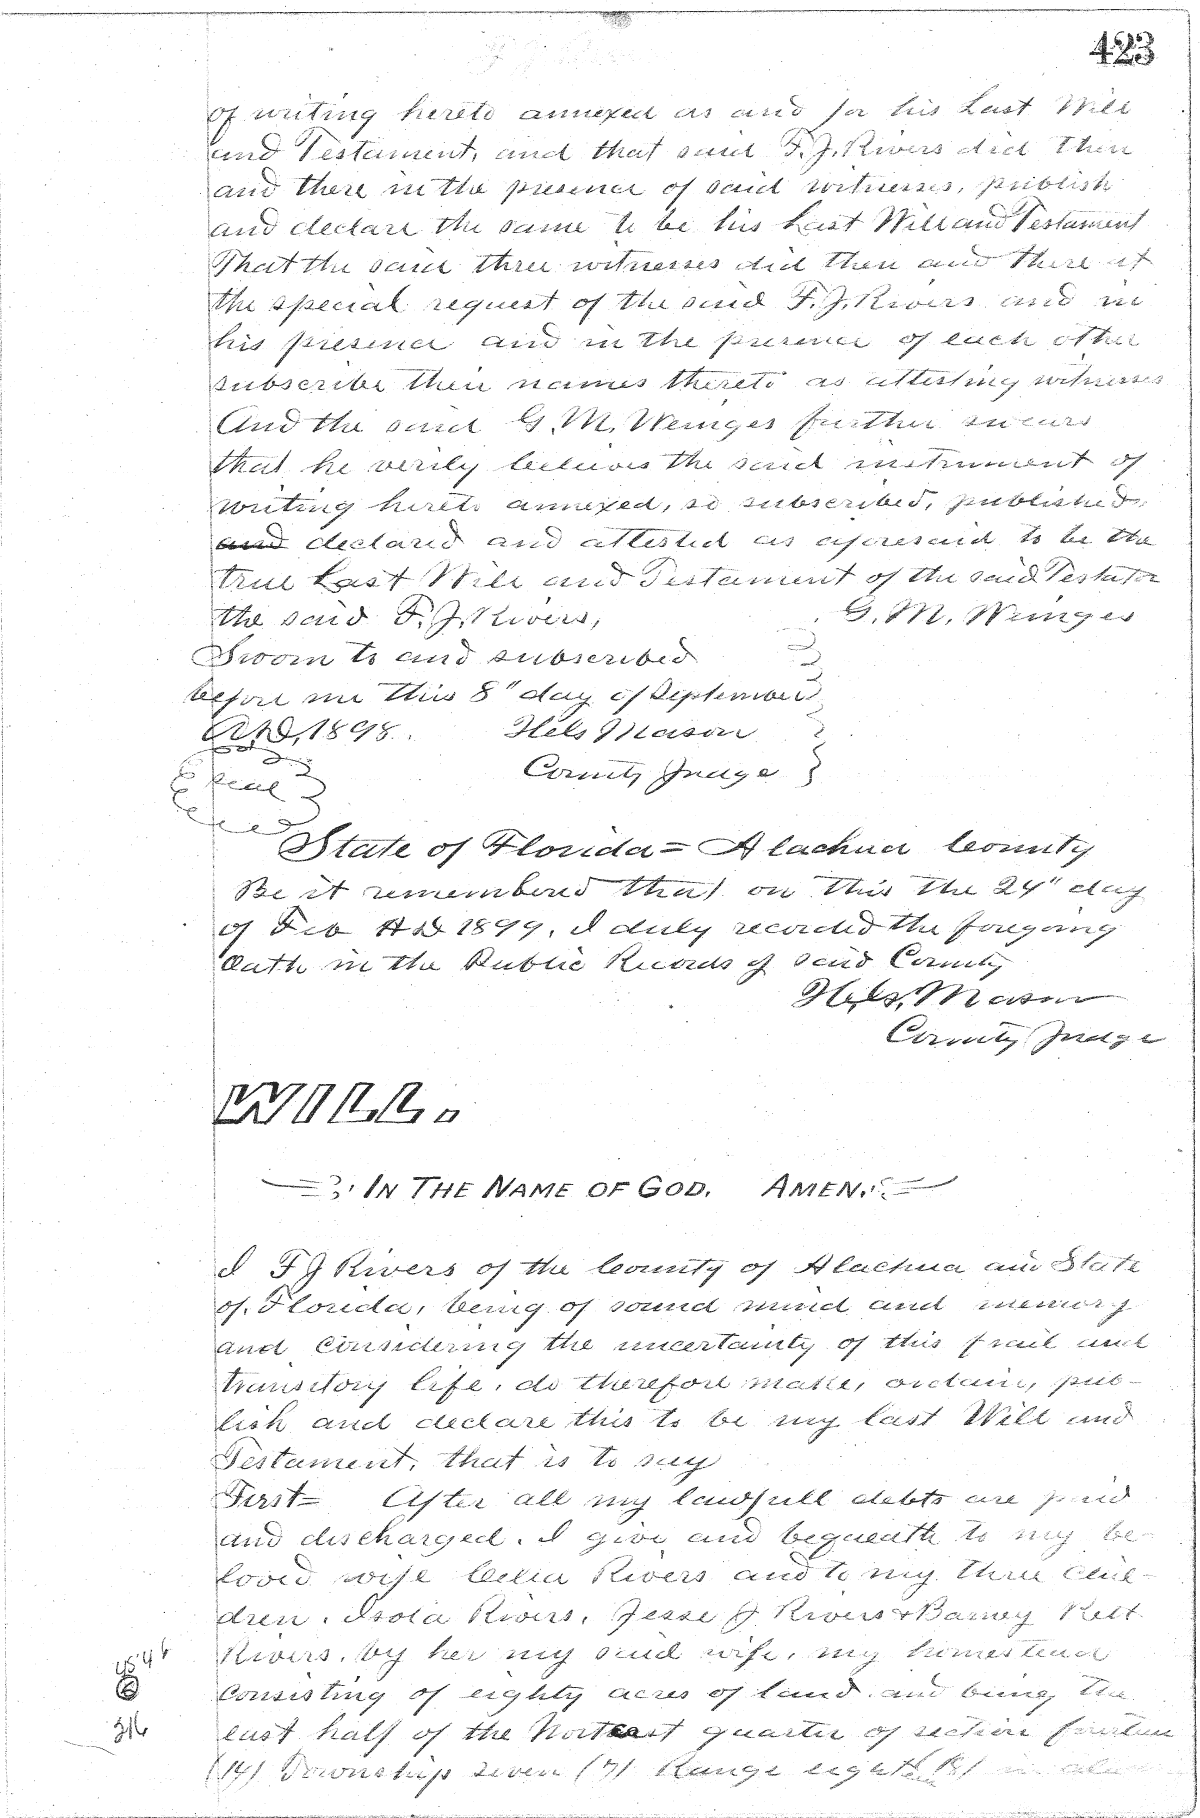 423
of writing hereto annexed as and for his Last Will
and Testament, and that said F. J. Rivers did then
and there in the presence of said witnesses, publish
and declare the same to be his Last Will and Testament
That the said three witnesses did then and there at
the special request of the said F. J. Rivers and in
his presence and in the presence of each other
subscribe their names thereto as attesting witnesses
And the said G. M. Weinges further swears
that he verily believes the said instrument of
writing hereto annexed, so subscribed, published,
and declared and attested as aforesaid to be the
true Last Will and Testament of the said Testator
the said F. J. Rivers, G. M. Weinges
Sworn to and subscribed
before me this 8" day of September
A.D. 1898. Hels Mason
seal County Judge
State of Florida = Alachua County
Be it remembered that on this the 24" day
of Feb AD 1899, I duly recorded the foregoing
Oath in the Public Records of said County
Hels. Mason
County Judge
WILL.
IN THE NAME OF GOD. AMEN.
I F J Rivers of the County of Alachua and State
of Florida, being of sound mind and memory
and considering the uncertainty of this frail and
transitory life, do therefore make, ordain, pub-
lish and declare this to be my last Will and
Testament, that is to say
First = After all my lawfull debts are paid
and discharged. I give and bequeath to my be-
loved wife Celia Rivers and to my three chil-
dren. Isola Rivers, Jesse J Rivers & Barney Kelt
Rivers, by her my said wife, my homestead
consisting of eighty acres of land and being the
east half of the Norteast quarter of section fourteen
(14) Township seven (7) Range eight (8) in
316